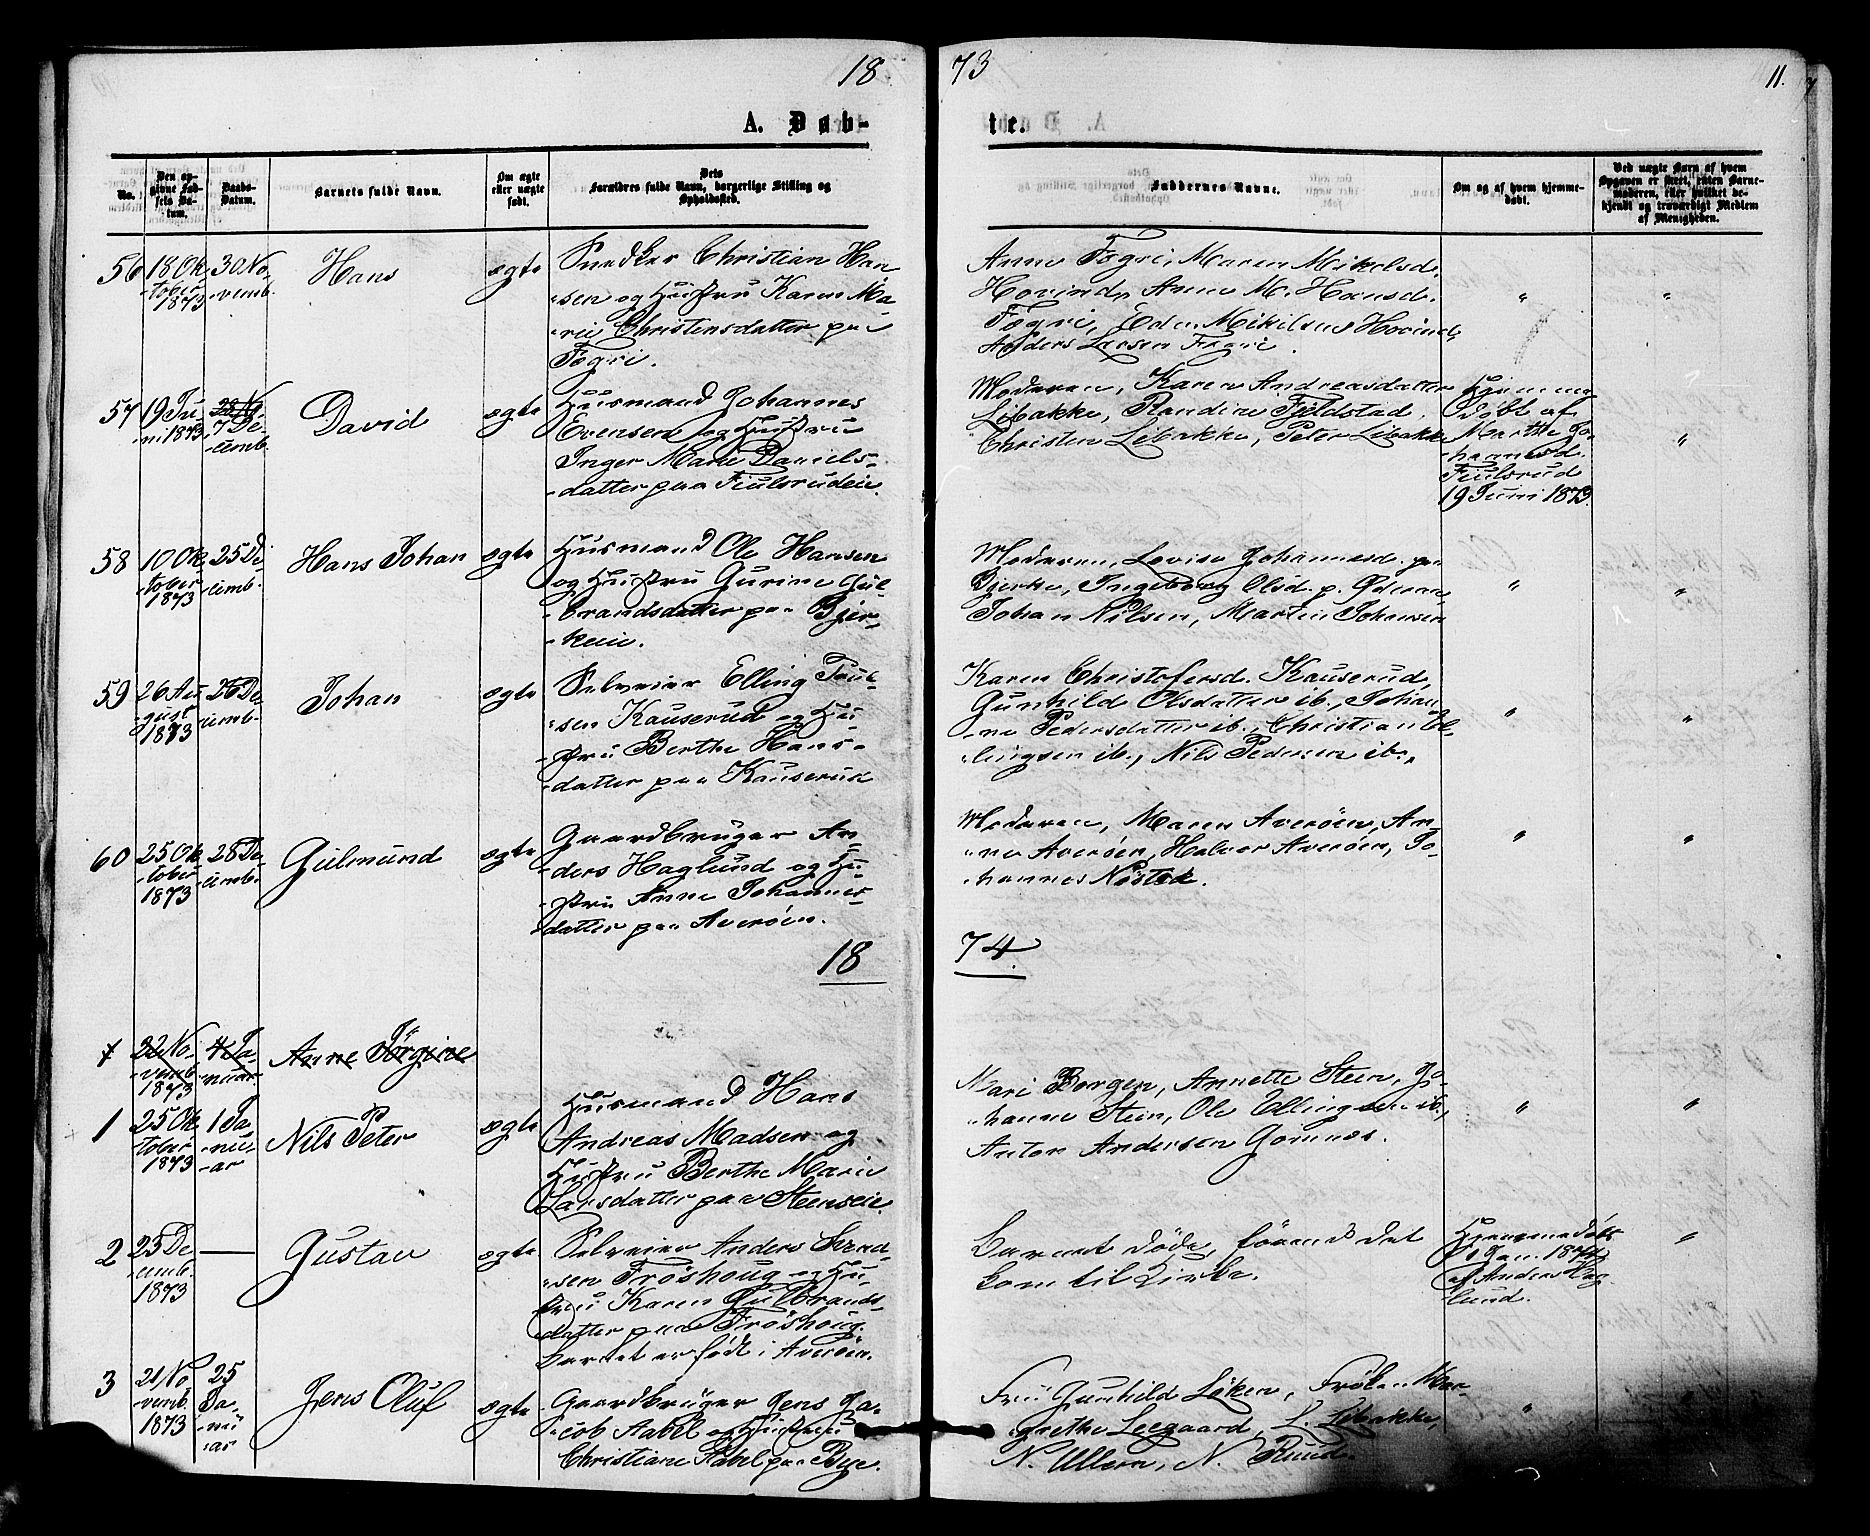 18 73 11.
A. Døb- te.
No.
Den op-
givne Fød-
sels Da-
tum.
Daabs-
Datum.
Barnets fulde Navn.
Om ægte
eller uægte
født.
Dets
Forældres fulde Navn, borgerlige Stilling og
Opholdssted.
Faddernes Navne.
Om og af hvem hjemme-
døbt.
Ved uægte Børn af hvem
Opgaven er skeet, enten Barne-
moderen, eller hvilket be-
kjendt og troværdigt Medlem
af Menigheden.
56
18 Ok
-tober
1873
30 No-
-vemb.
Hans
ægte
Snedker Christian Han
-sen og Hustru Karen Ma-
-rie Christensdatter paa
Fogri.
Anne Fogri, Maren Mikelsd.
Hovind, Anne M. Hansd.
Fogri, Edv. Mikelsen Hovind,
Anders Larsen Fogri.
"
"
57
19 Ju-
-ni 1873
28 No-
7 De-
-cemb.
David
ægte
Husmand Johannes
Evensen og Hustru
Inger Marie Daniels-
-datter paa Fiulsrudeie.
Moderen, Karen Andreasdatter
Libakke, Randine Fjeldstad.
Christen Libakke, Peter Libakke
Hjemme
døbt af
Marthe Jo-
-hannesd.
Fiulsrud
19 Juni 1873.
"
58
10 Ok
-tober
1873
25 De-
-cemb.
Hans Johan
ægte
Husmand Ole Hansen
og Hustru Gurine Gul-
-brandsdatter paa Bjer-
-keeie.
Moderen, Lovise Johannesd. paa
Bjerke, Ingeborg Olsd. p.
Johan Nilsen, Martin Johansen
"
"
59
26 Au-
-gust
1873
26 De-
-cemb.
Johan
ægte
Selveier Elling Truls-
-sen Kauserud og Hu-
-stru Berthe Hans-
-datter paa Kauserud
Karen Christofersd. Kauserud,
Gunhild Olsdatter ib., Johan-
-ne Pedersdatter ib., Christian El-
-lingsen ib., Nils Pedersen ib.,
"
"
60
25 Ok
-tober
1873
28 De-
-cemb.
Gulmund
ægte
Gaardbruger An-
-ders Haglund og Hu-
-stru Anne Johannes-
-datter paa Averøen.
Moderen, Maren Averøen, An-
-ne Averøen, Halvor Averøen, Jo-
-hannes Nøstad.
"
"
18 74.
1
22 No-
-vemb.
1873
4 Ja-
-nuar.
Anne Jørgine
1
25 Ok
-tober
1873
1 Ja-
-nu-
-ar
Nils Peter
ægte
Husmand Hans
Andreas Madsen og
Hustru Berthe Marie
Larsdatter paa Steenseie.
Mari Borgen, Annette Steen, Jo-
-hanne Steen, Ole Ellingsen ib.,
Anton Andersen Gomnæs.
"
"
2
25 De-
-cemb.
1873
Gustav
ægte
Selveier Anders Svend-
-sen Frøshoug og Hu-
-stru Karen Gulbrands-
-datter paa Frøshoug.
Barnet er født i Averøen.
Barnet døde, førend det
kom til Kirke.
Hjemmedøbt
1 Jan. 1874
af Anders Hag-
-lund.
"
3
21 No
-vemb.
1873
25
Ja-
-nu-
-ar
Jens Oluf
ægte
Gaardbruger Jens Ja-
-cob Aabel og Hustru
Christiane Aabel paa Bye.
Fru Gunhild Løken, Frøken Mar-
-grethe Leegaard, L. Libakke,
N. Ullern, N. Ruud.
"
"